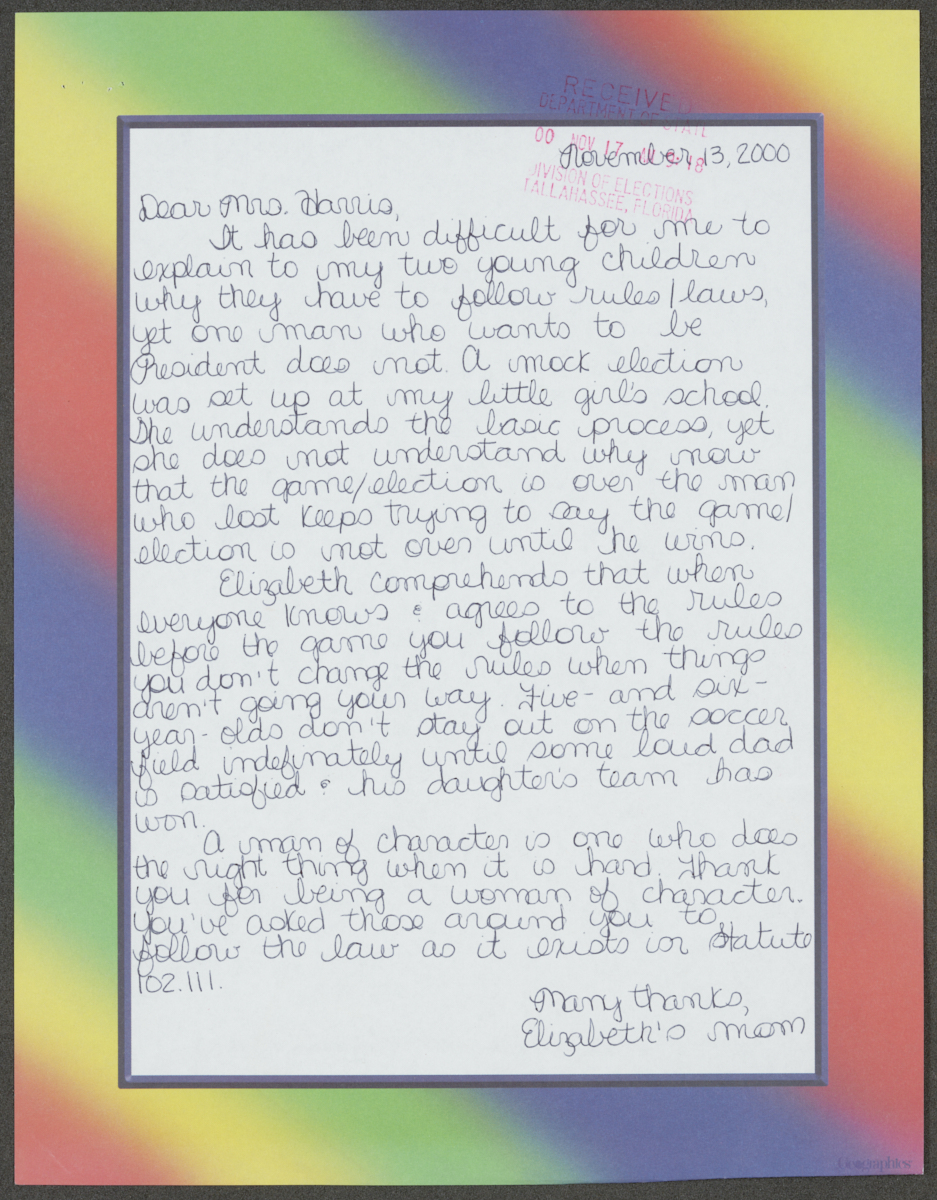 RECEIVED
DEPARTMENT OF STATE
00 NOV 17 9:48
DIVISION OF ELECTIONS
TALLAHASSEE, FLORIDA
November 13, 2000
Dear Mrs. Harris,
It has been difficult for me to
explain to my two young children
why they have to follow rules/laws,
yet one man who wants to be
President does not. A mock election
was set up at my little girl's school.
She understands the basic process, yet
she does not understand why now
that the game/election is over the man
who lost keeps trying to say the game/
election is not over until he wins.
Elizabeth comprehends that when
everyone knows & agrees to the rules
before the game you follow the rules
you don't change the rules when things
aren't going your way. Five- and six-
year-olds don't stay out on the soccer
field indefinately until some loud dad
is satisfied & his daughter's team has
won.
A man of character is one who does
the right thing when it is hard. Thank
you for being a woman of character.
You've asked those around you to
follow the law as it exists in Statute
102.111.
Many thanks,
Elizabeth's mom
Geographics